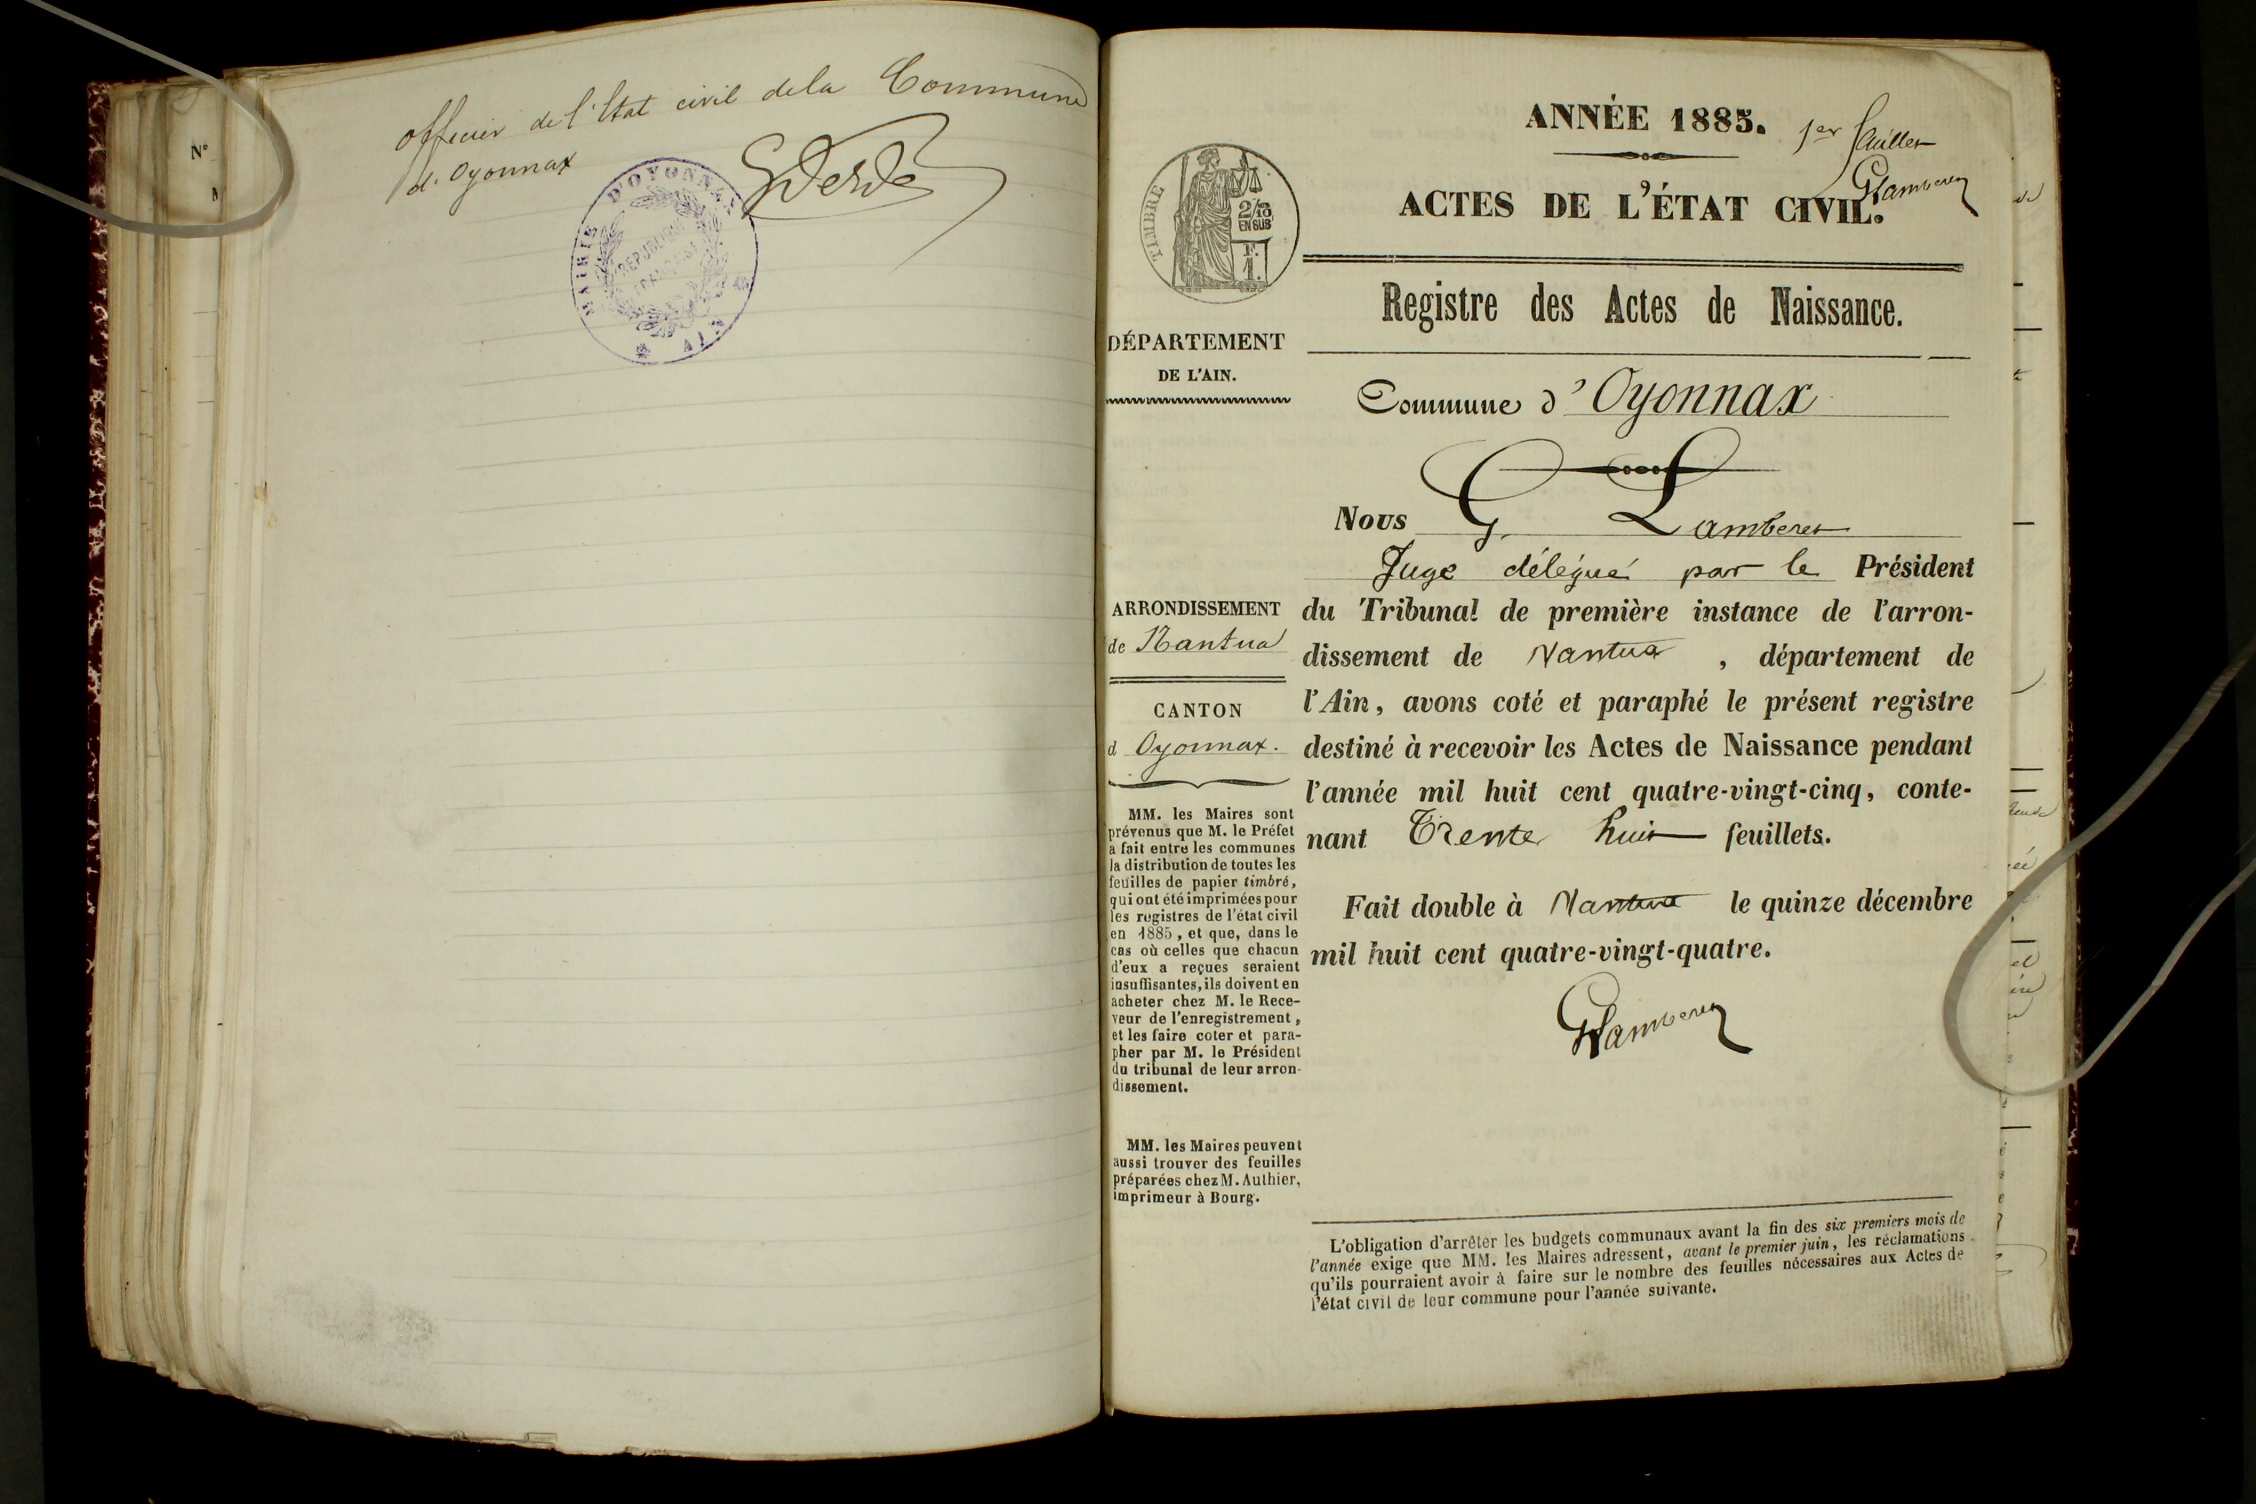 officier de l'Etat civil de la Commune
d'Oyonnax
MAIRIE D'OYONNAX
RÉPUBLIQUE
FRANÇAISE
AIN
N°
ANNÉE 1885.
1er feuillet
GLamberet
ACTES DE L'ÉTAT CIVIL.
TIMBRE
2/10
EN SUS
F.
1.
Registre des Actes de Naissance.
DÉPARTEMENT
DE L'AIN.
Commune d'Oyonnax
Nous G. Lamberet
Juge délégué par le Président
du Tribunal de première instance de l'arron-
dissement de Nantua, département de
l'Ain, avons coté et paraphé le présent registre
destiné à recevoir les Actes de Naissance pendant
l'année mil huit cent quatre-vingt-cinq, conte-
nant Trente huit feuillets.
Fait double à Nantua le quinze décembre
mil huit cent quatre-vingt-quatre.
GLamberet
ARRONDISSEMENT
de Nantua
CANTON
d Oyonnax.
MM. les Maires sont
prévenus que M. le Préfet
a fait entre les communes
la distribution de toutes les
feuilles de papier timbré,
qui ont été imprimées pour
les registres de l'état civil
en 1885, et que, dans le
cas où celles que chacun
d'eux a reçues seraient
insuffisantes, ils doivent en
acheter chez M. le Rece-
veur de l'enregistrement,
et les faire coter et para-
pher par M. le Président
du tribunal de leur arron-
dissement.
MM. les Maires peuvent
aussi trouver des feuilles
préparées chez M. Authier,
imprimeur à Bourg.
L'obligation d'arrêter les budgets communaux avant la fin des six premiers mois de
l'année exige que MM. les Maires adressent, avant le premier juin, les réclamations
qu'ils pourraient avoir à faire sur le nombre des feuilles nécessaires aux Actes de
l'état civil de leur commune pour l'année suivante.